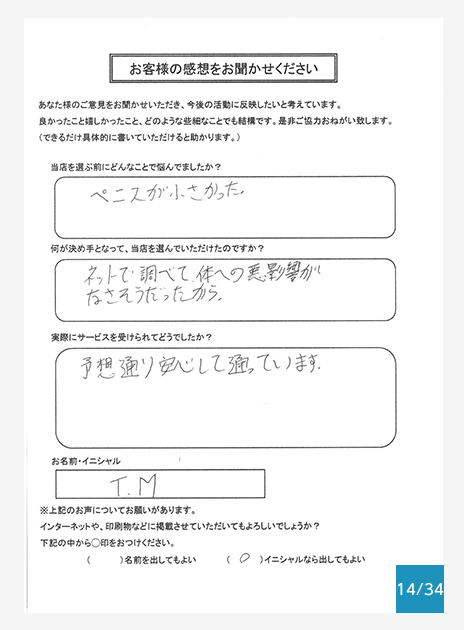 お客様の感想をお聞かせください
あなた様のご意見をお聞かせいただき、今後の活動に反映したいと考えています。
良かったこと嬉しかったこと、どのような些細なことでも結構です。是非ご協力おねがい致します。
（できるだけ具体的に書いていただけると助かります。）
当店を選ぶ前にどんなことで悩んでましたか？
ペニスが小さかった。
何が決め手となって、当店を選んでいただけたのですか？
ネットで調べて体への悪影響が
なさそうだったから。
実際にサービスを受けられてどうでしたか？
予想通り安心して通っています。
お名前・イニシャル
T.M
※上記のお声についてお願いがあります。
インターネットや、印刷物などに掲載させていただいてもよろしいでしょうか？
下記の中から〇印をおつけください。
（　　）名前を出してもよい　（ 〇 ）イニシャルなら出してもよい
14/34